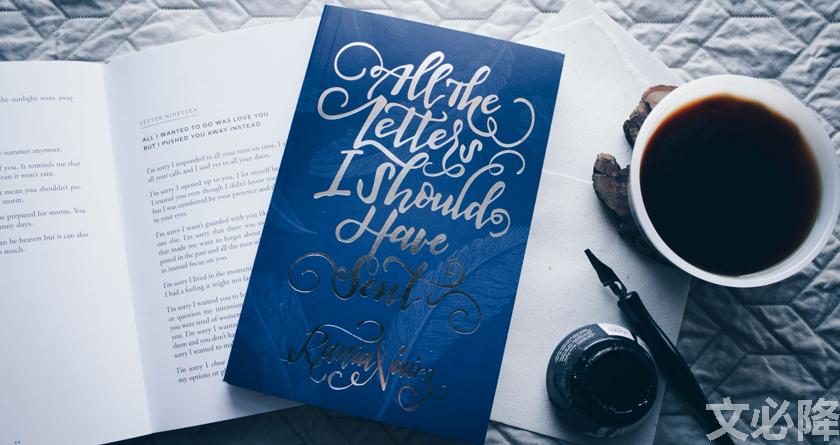 the sunlight went away
summer anymore.
f you. It reminds me that
ean it won't rain.
t mean you shouldn't pre-
storm.
e prepared for storms. You
nny days.
an be heaven but it can also
much.
64
LETTER NINETEEN
ALL I WANTED TO DO WAS LOVE YOU
BUT I PUSHED YOU AWAY INSTEAD
I'm sorry I responded to all your texts on time. I
all your calls and I said yes to all your dates.
I'm sorry I opened up to you. I let myself be
I trusted you even though I didn't know you
but I was comforted by your presence and th
in your eyes.
I'm sorry I wasn't guarded with you lik
one else. I'm sorry that there was so
that made me want to forget about
pened in the past and all the men w
to instead focus on you.
I'm sorry I lived in the moment
I had a feeling it might not las
I'm sorry I wanted you to h
or question my intention
you were tired of women
them and you don't ha
sorry I wanted to ma
I'm sorry I chose
my options or p
All the
Letters
I Should
Have
Sent
Rania Naim
文必隆